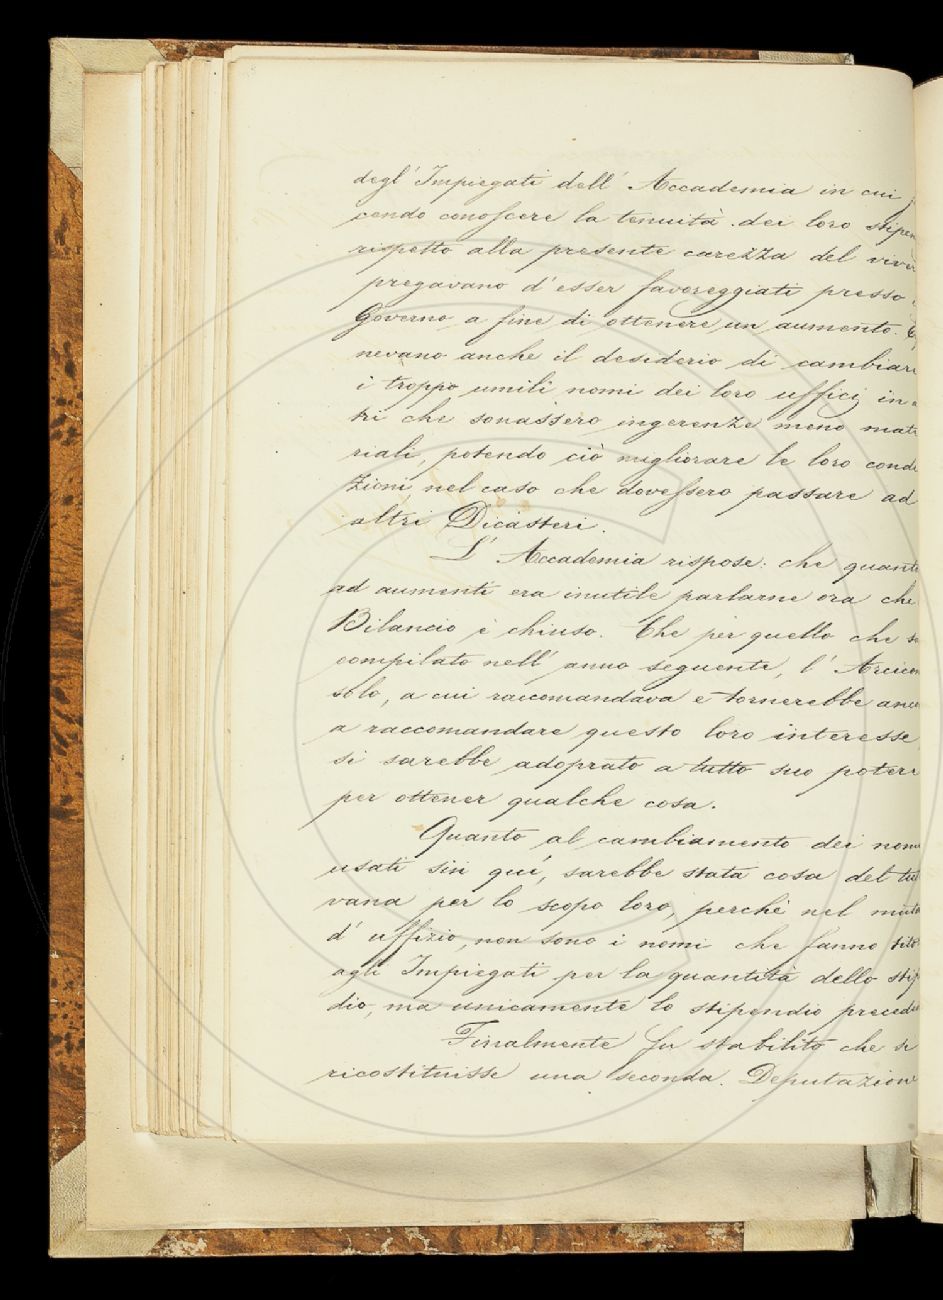 degl' Impiegati dell' Accademia in cui
cendo conoscere la tenuità dei loro stipen
rispetto alla presente carezza del viver
pregavano d'esser favoreggiati presso
Governo a fine di ottenere un aumento.
nevano anche il desiderio di cambiar
i troppo umili nomi dei loro uffici in a
tri che sonassero ingerenze meno mate
riali, potendo ciò migliorare le loro condi
zioni, nel caso che dovessero passare ad
altri Dicasteri.
L' Accademia rispose: che quant
ad aumenti era inutile parlarne ora che
Bilancio è chiuso. Che per quello che s
compilato nell' anno seguente, l' Arcicon
solo, a cui raccomandava e tornerebbe anco
a raccomandare questo loro interesse
si sarebbe adoprato a tutto suo potere
per ottener qualche cosa.
Quanto al cambiamento dei nom
usati sin qui, sarebbe stata cosa del tut
vana per lo scopo loro, perchè nel muta
d' uffizio, non sono i nomi che fanno tito
agli Impiegati per la quantità dello stip
dio, ma unicamente lo stipendio preced
Finalmente fu stabilito che si
ricostituisse una seconda Deputazion